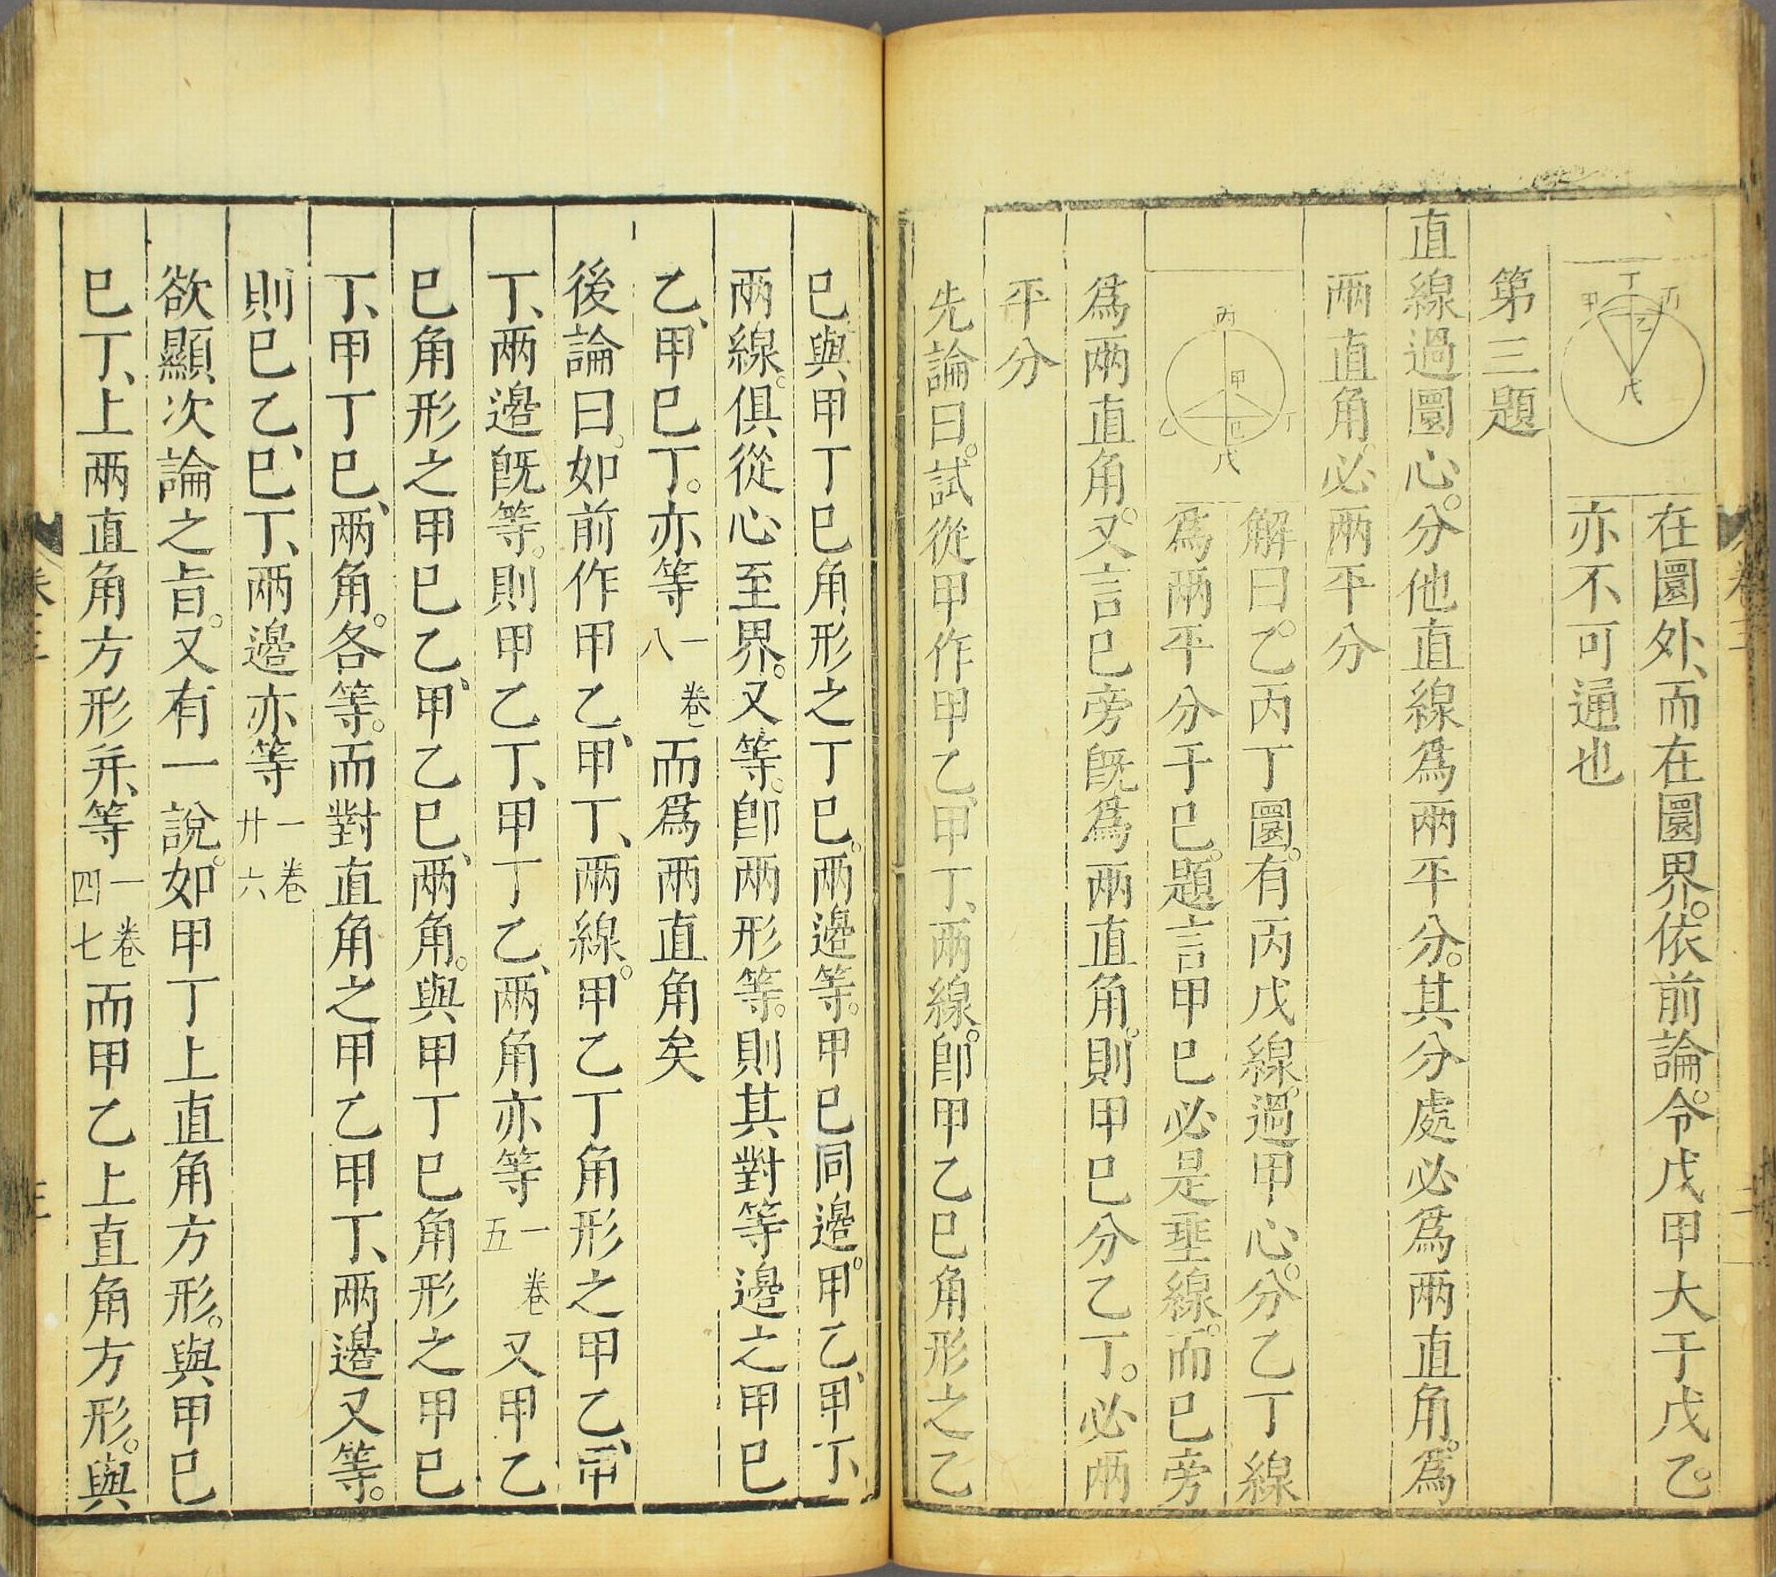 丁
甲
丙
乙
戊
在圜外、而在圜界。依前論。令戊甲大于戊乙。
亦不可通也
第三題
直線過圜心。分他直線為兩平分。其分處必為兩直角。為
兩直角。必兩平分
丙
甲
乙
己
丁
戊
解曰。乙丙丁圜。有丙戊線。過甲心。分乙丁線
為兩平分于己。題言甲己必是垂線。而己旁
為兩直角。又言己旁既為兩直角。則甲己分乙丁。必兩
平分
先論曰。試從甲作甲乙、甲丁、兩線。即甲乙己角形之乙
己與甲丁己角形之丁己。兩邊等。甲己同邊。甲乙、甲丁、
兩線。俱從心至界。又等。即兩形等。則其對等邊之甲己
乙、甲己丁。亦等一卷八而為兩直角矣
後論曰。如前作甲乙、甲丁、兩線。甲乙丁角形之甲乙、甲
丁、兩邊既等。則甲乙丁、甲丁乙、兩角亦等一卷五又甲乙
己角形之甲己乙、甲乙己、兩角。與甲丁己角形之甲己
丁、甲丁己、兩角。各等。而對直角之甲乙甲丁、兩邊又等。
則己乙、己丁、兩邊亦等一卷廿六
欲顯次論之旨。又有一說。如甲丁上直角方形。與甲己
己丁、上兩直角方形并、等一卷四七而甲乙上直角方形。與
卷三
三